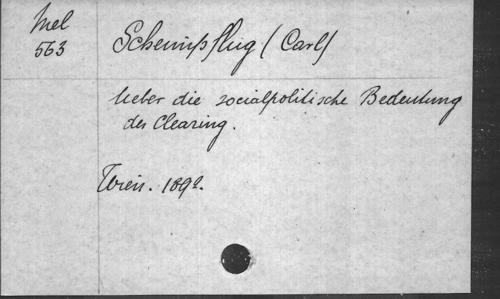 Mel
563
Scheimpflug (Carl)
Ueber die socialpolitische Bedeutung
des Clearing.
Wien. 1892.